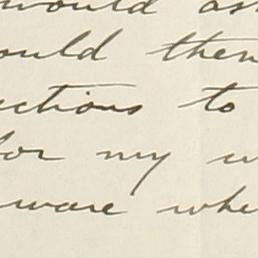 would as
ould then
ctions to
for my w
ware whe